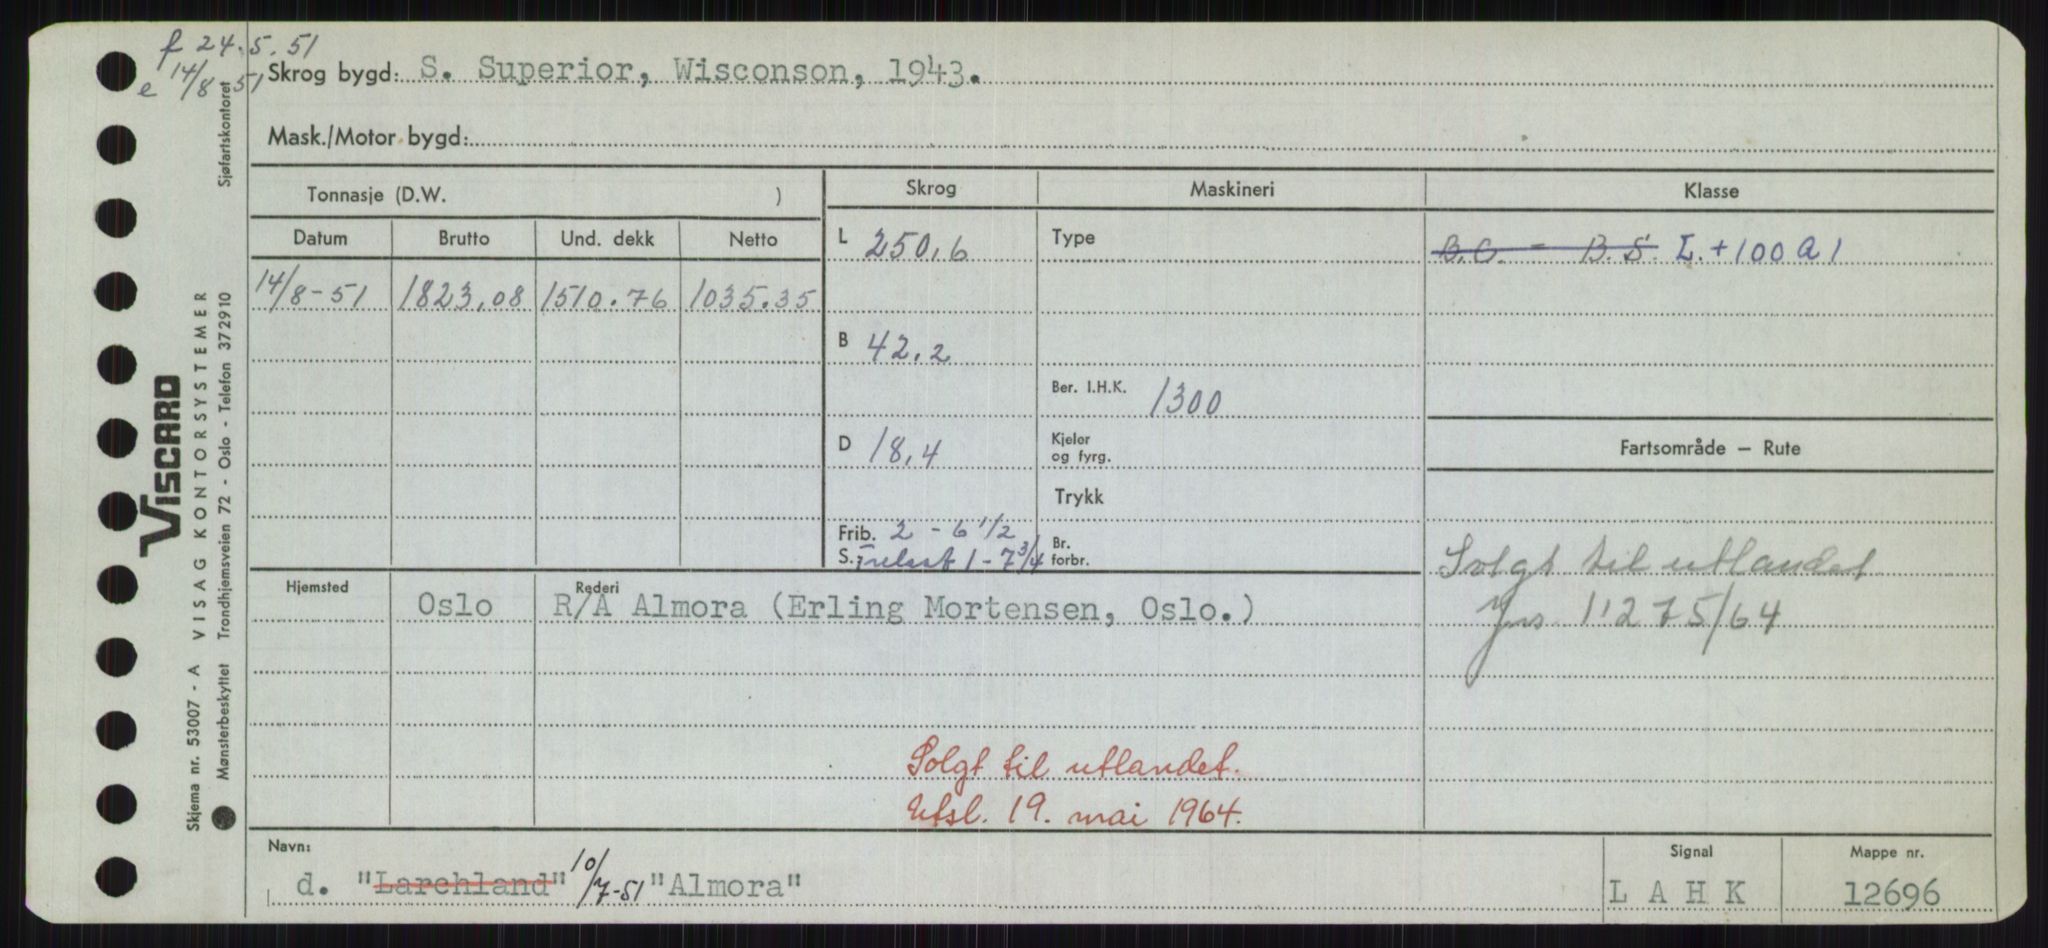 f 24.5.51
e 14/8-51
Skrog bygd: S. Superior, Wisconson, 1943.
Mask./Motor bygd:
Tonnasje (D.W. )
Skrog
Maskineri
Klasse
Datum
Brutto
Und. dekk
Netto
14/8-51
1823,08
1510.76
1035.35
L 250,6
B 42,2
D 18,4
Frib. 2 - 6 1/2
S. Trelast 1 - 7 3/4
Type
Ber. I.H.K. 1300
Kjeler
og fyrg.
Trykk
Br.
forbr.
B.C. - B.S. L. +100 A1
Fartsområde — Rute
Solgt til utlandet
Jns. 11275/64
Hjemsted
Oslo
Rederi
R/A Almora (Erling Mortensen, Oslo.)
Solgt til utlandet.
Utsl. 19. mai 1964.
Navn:
d. "Larchland" 10/7-51 "Almora"
Signal
L A H K
Mappe nr.
12696
Skjema nr. 53007 - A VISAG KONTORSYSTEMER
VISCARD
Mønsterbeskyttet Trondhjemsveien 72 - Oslo - Telefon 372910
Sjøfartskontoret